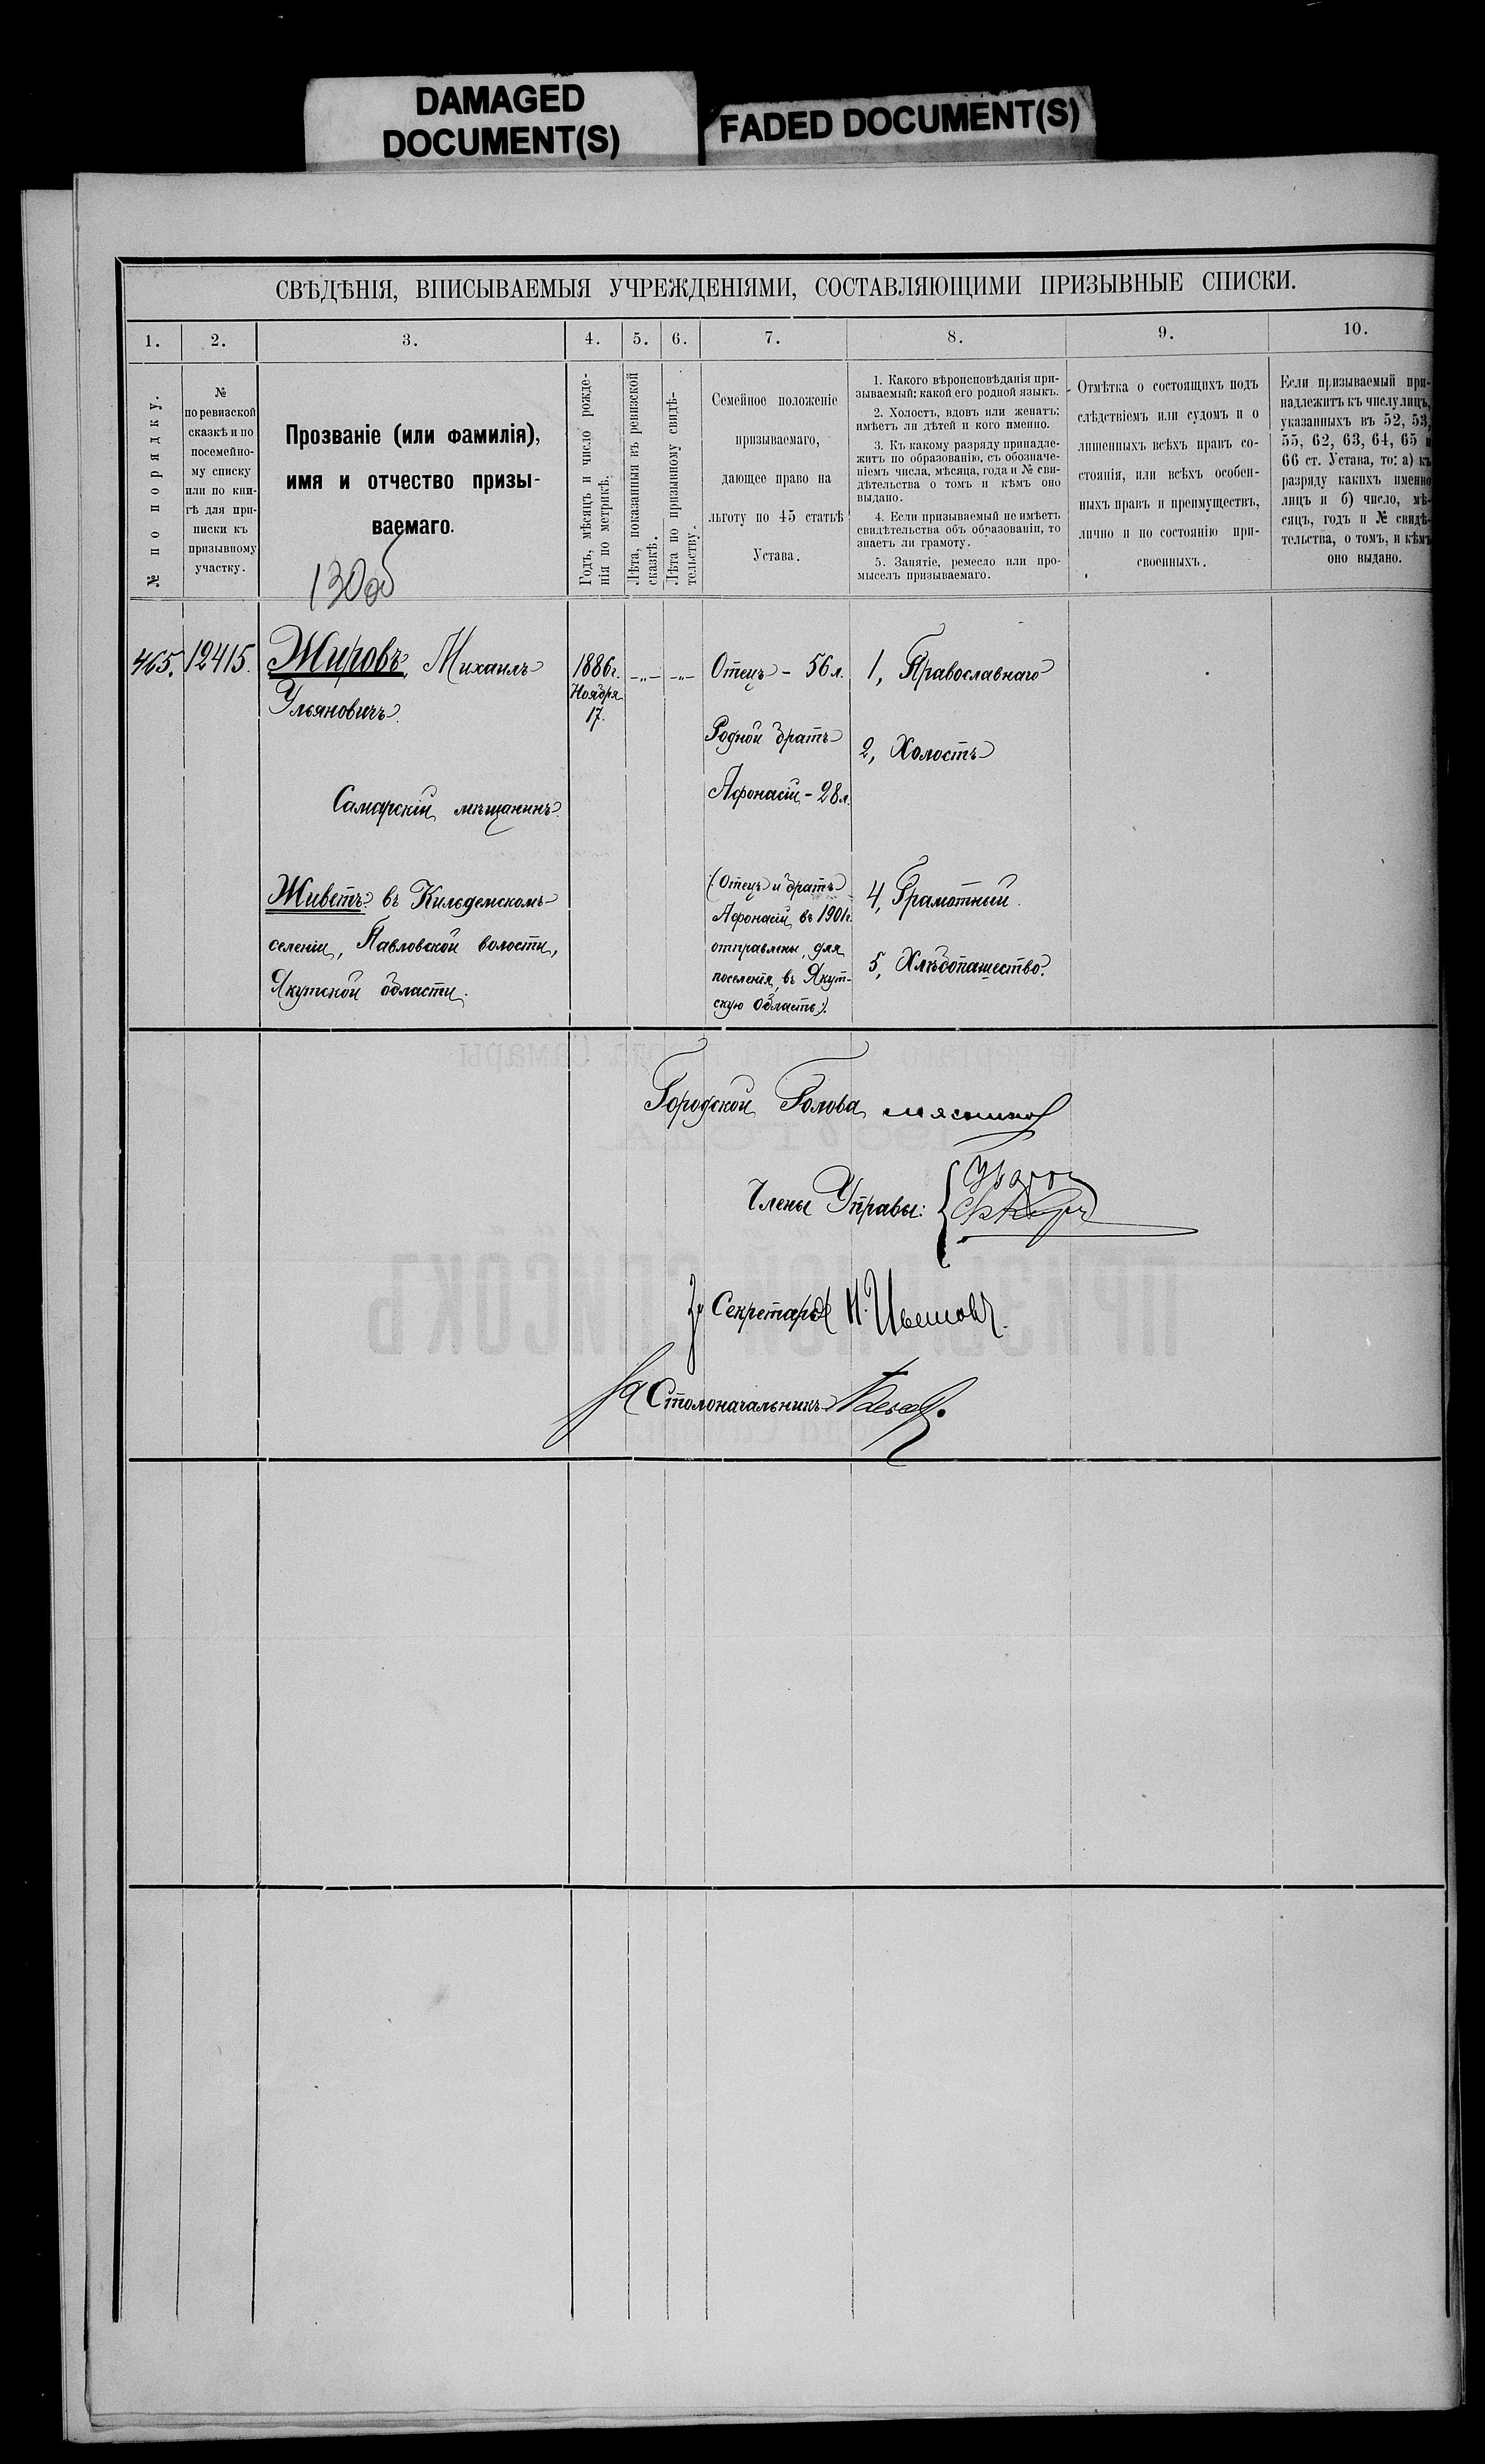 DAMAGED
DOCUMENT(S)
FADED DOCUMENT(S)
СВѢДѢНІЯ, ВПИСЫВАЕМЫЯ УЧРЕЖДЕНІЯМИ, СОСТАВЛЯЮЩИМИ ПРИЗЫВНЫЕ СПИСКИ.
1.
2.
3.
4.
5.
6.
7.
8.
9.
10.
№ по порядку.
№
по ревизской
сказкѣ и по
посемейно-
му списку
или по кни-
гѣ для при-
писки къ
призывному
участку.
Прозваніе (или фамилія),
имя и отчество призы-
ваемаго.
130об
Годъ, мѣсяцъ и число рожде-
нія по метрикѣ.
Лѣта, показанныя въ ревизской
сказкѣ.
Лѣта по призывному свидѣ-
тельству.
Семейное положеніе
призываемаго,
дающее право на
льготу по 45 статьѣ
Устава.
1. Какого вѣроисповѣданія при-
зываемый; какой его родной языкъ.
2. Холостъ, вдовъ или женатъ;
имѣетъ ли дѣтей и кого именно.
3. Къ какому разряду принадле-
житъ по образованію, съ обозначе-
ніемъ числа, мѣсяца, года и № сви-
дѣтельства о томъ и кѣмъ оно
выдано.
4. Если призываемый не имѣетъ
свидѣтельства объ образованіи, то
знаетъ ли грамоту.
5. Занятіе, ремесло или про-
мыселъ призываемаго.
Отмѣтка о состоящихъ подъ
слѣдствіемъ или судомъ и о
лишенныхъ всѣхъ правъ со-
стоянія, или всѣхъ особен-
ныхъ правъ и преимуществъ,
лично и по состоянію при-
своенныхъ.
Если призываемый при-
надлежитъ къ числу лицъ,
указанныхъ въ 52, 53,
55, 62, 63, 64, 65 и
66 ст. Устава, то: а) къ
разряду какихъ именно
лицъ и б) число, мѣ-
сяцъ, годъ и № свидѣ-
тельства, о томъ, и кѣмъ
оно выдано.
465.
12415.
Жировъ, Михаилъ
Ульяновичъ.
Самарскій мѣщанинъ.
Живетъ: въ Кильдемскомъ
селеніи, Павловской волости,
Якутской области.
1886г.
Ноября
17.
-„-
-„-
Отецъ - 56 л.
Родной братъ
Афонасій - 28 л.
(Отецъ и братъ
Афонасій въ 1901г.
отправлены, для
поселенія, въ Якут-
скую область).
1, Православнаго
2, Холостъ
4, Грамотный.
5, Хлѣбопашество.
Городской Голова
Члены Управы:
Секретарь
Столоначальникъ